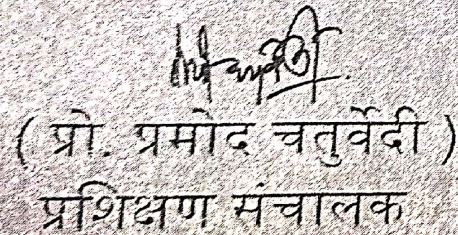 ( प्रो. प्रमोद चतुर्वेदी )
प्रशिक्षण संचालक